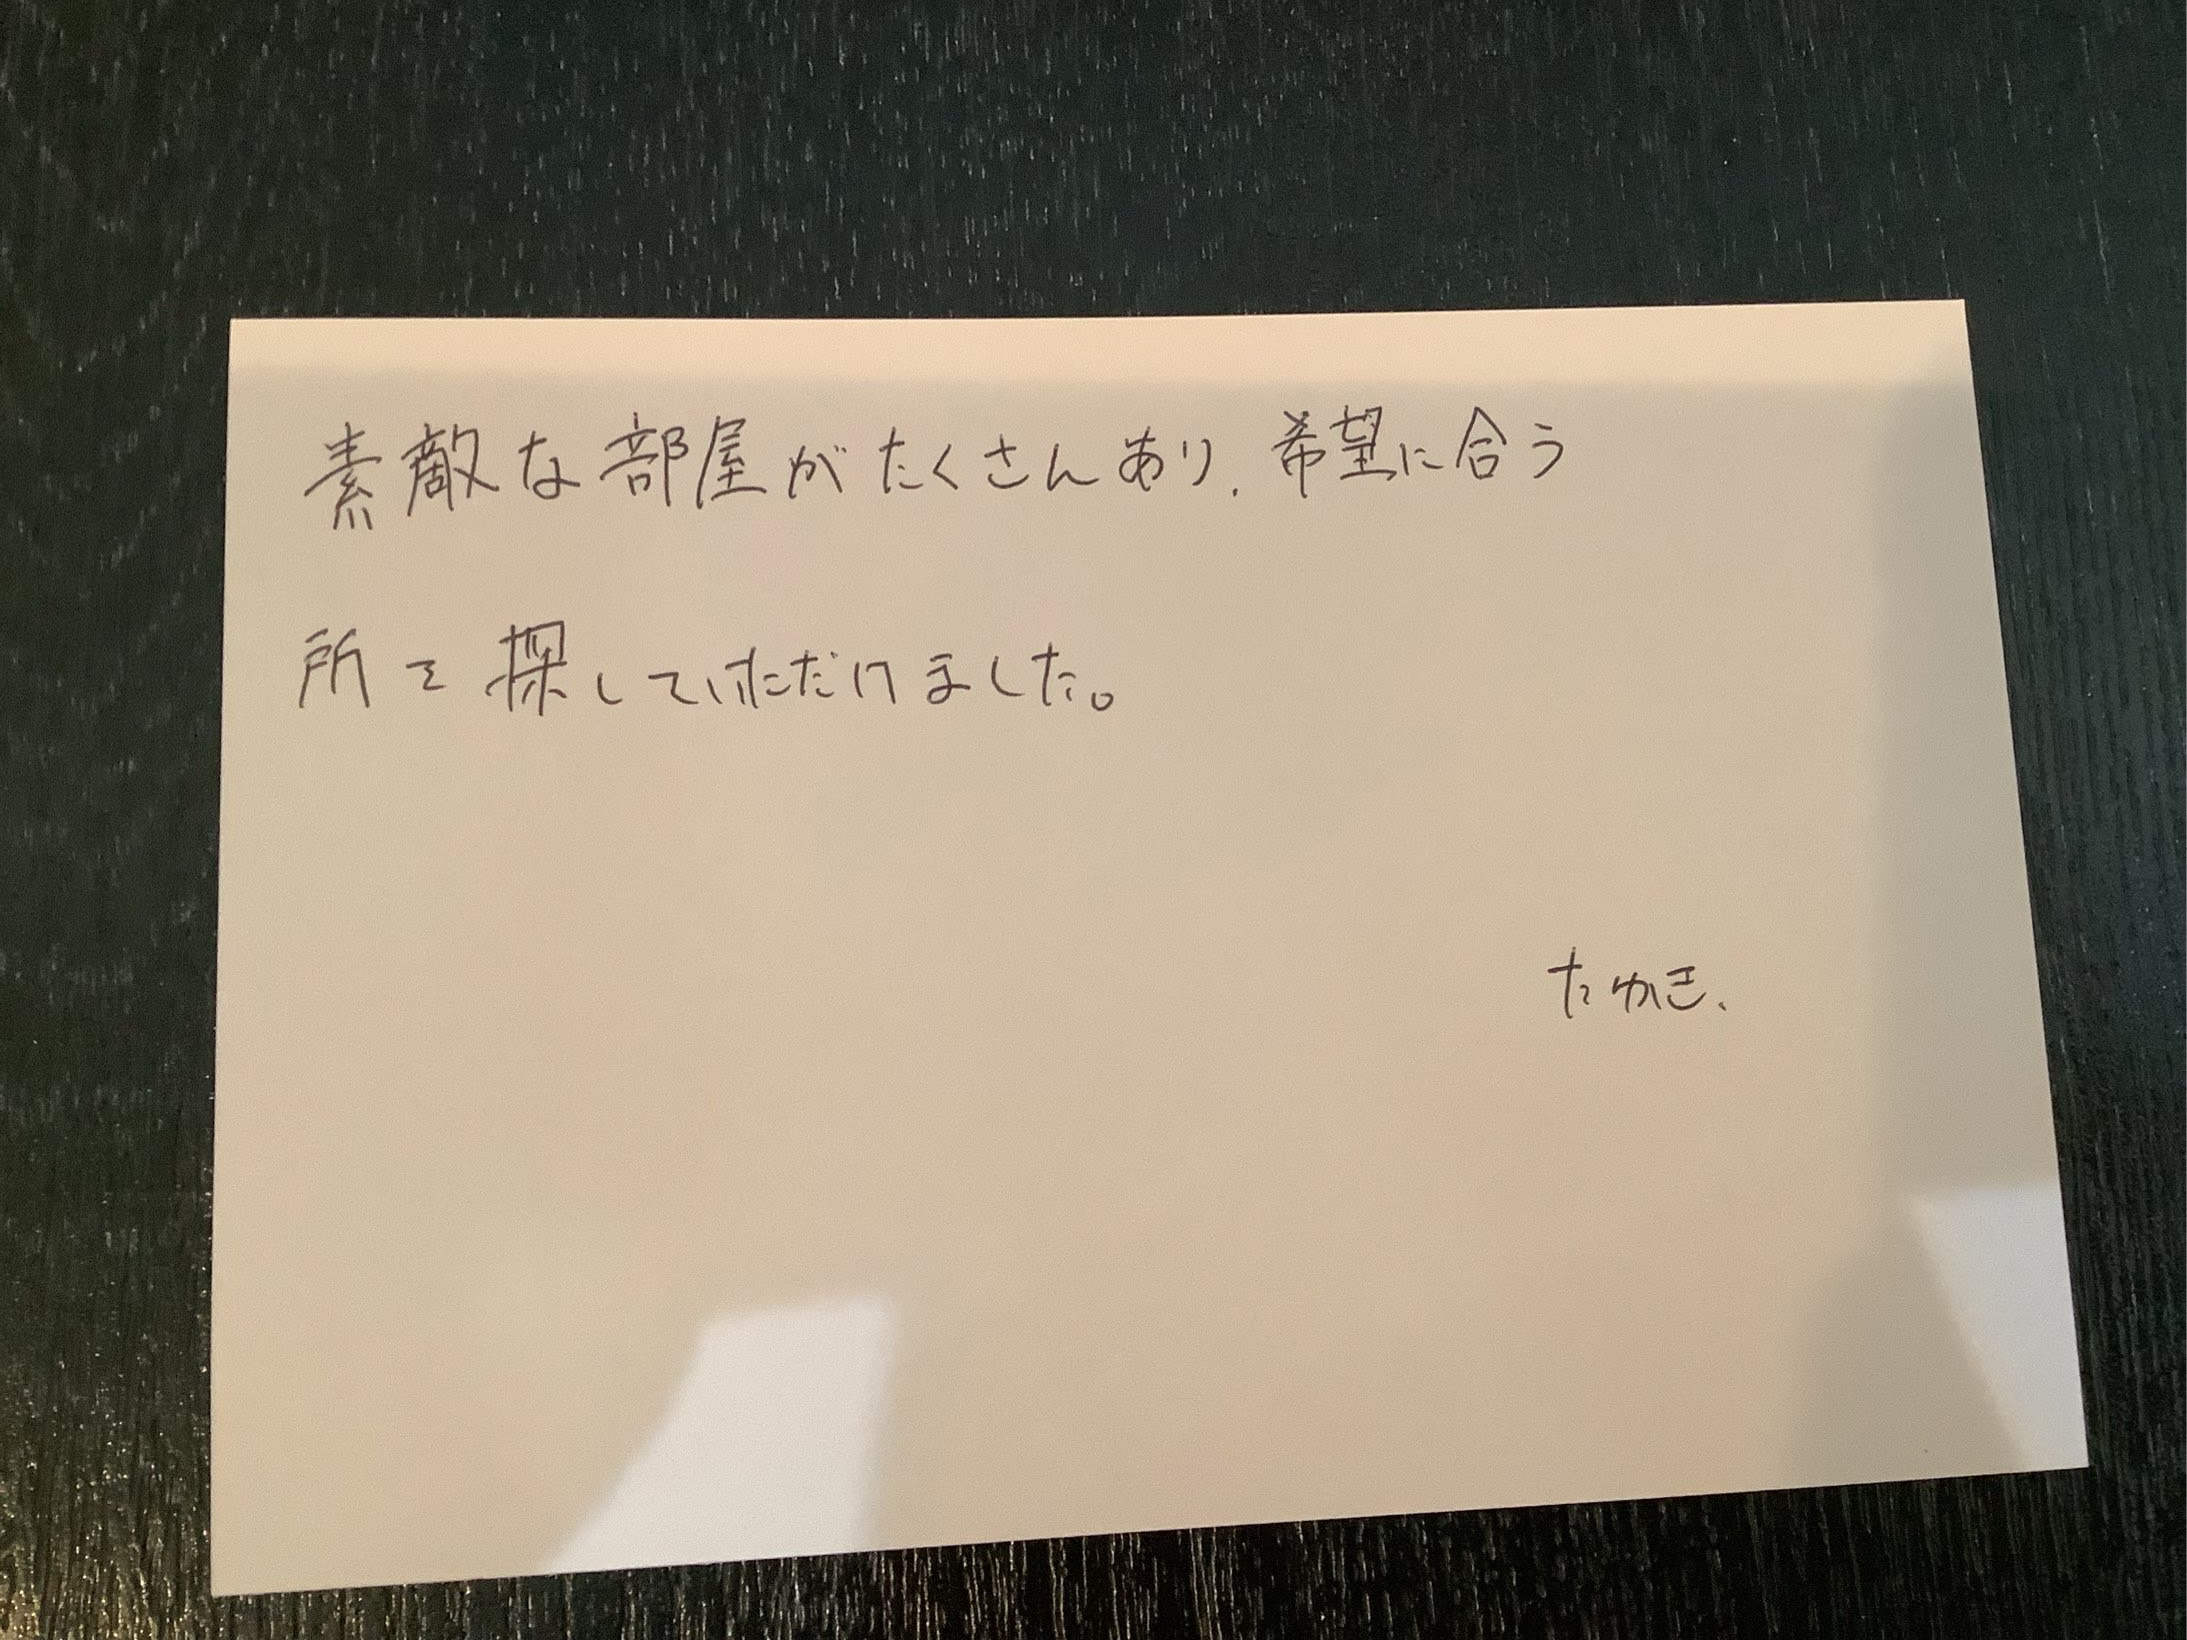 素敵な部屋がたくさんあり、希望に合う
所を探していただけました。
たかき、